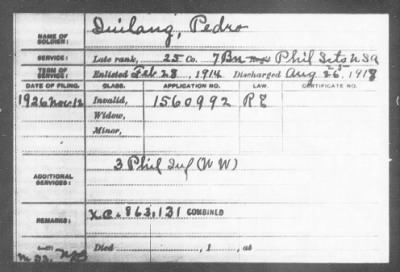 NAME OF SOLDIER: Quilang, Pedro
SERVICE: Late rank, 25 Co. 7 Bn Phil Scts U S A
TERM OF SERVICE: Enlisted Feb 28, 1914 Discharged Aug 25, 1918
DATE OF FILING. CLASS. APPLICATION NO. LAW. CERTIFICATE NO.
1926 Nov. 12 Invalid, 1560992 R E
Widow,
Minor,
ADDITIONAL SERVICES: 3 Phil Inf (W W)
REMARKS: 863,131 COMBINED
Died , 1 , at